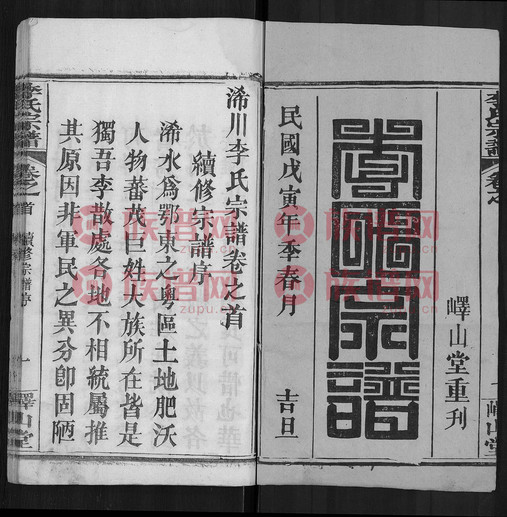 嶧山堂重刊
李氏宗譜
民國戊寅年季春月 吉旦
浠川李氏宗譜卷之首
續修宗譜序
浠水爲鄂東之奧區土地肥沃
人物蕃茂巨姓大族所在皆是
獨吾李散處各地不相統屬推
其原因非軍民之異分卽固陋
李氏宗譜
卷之首
續修宗譜序
一
嶧山堂
李氏宗譜
嶧山堂
族譜网
zupu.cn